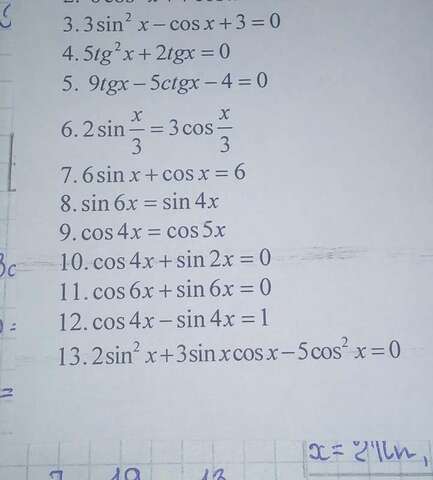 3. 3 sin² x − cos x + 3 = 0
4. 5tg² x + 2tgx = 0
5. 9tgx − 5ctgx − 4 = 0
6. 2 sin x/3 = 3 cos x/3
7. 6 sin x + cos x = 6
8. sin 6x = sin 4x
9. cos 4x = cos 5x
10. cos 4x + sin 2x = 0
11. cos 6x + sin 6x = 0
12. cos 4x − sin 4x = 1
13. 2 sin² x + 3 sin x cos x − 5 cos² x = 0